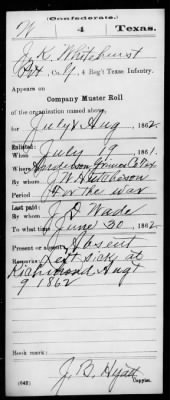 (Confederate.)
W 4 Texas.
J. K. Whitehurst
Pvt, Co. G, 4 Reg't Texas Infantry.
Appears on
Company Muster Roll
of the organization named above,
for July & Aug, 1862.
Enlisted:
When July 19, 1861.
Where Anderson Grimes Co Tex
By whom J. W. Hutcheson
Period For the war
Last paid:
By whom J D Wade
To what time June 30, 1862.
Present or absent Absent
Remarks: Left sick at
Richmond Augt
9 1862
Book mark:
J. B. Hyatt
(642) Copyist.